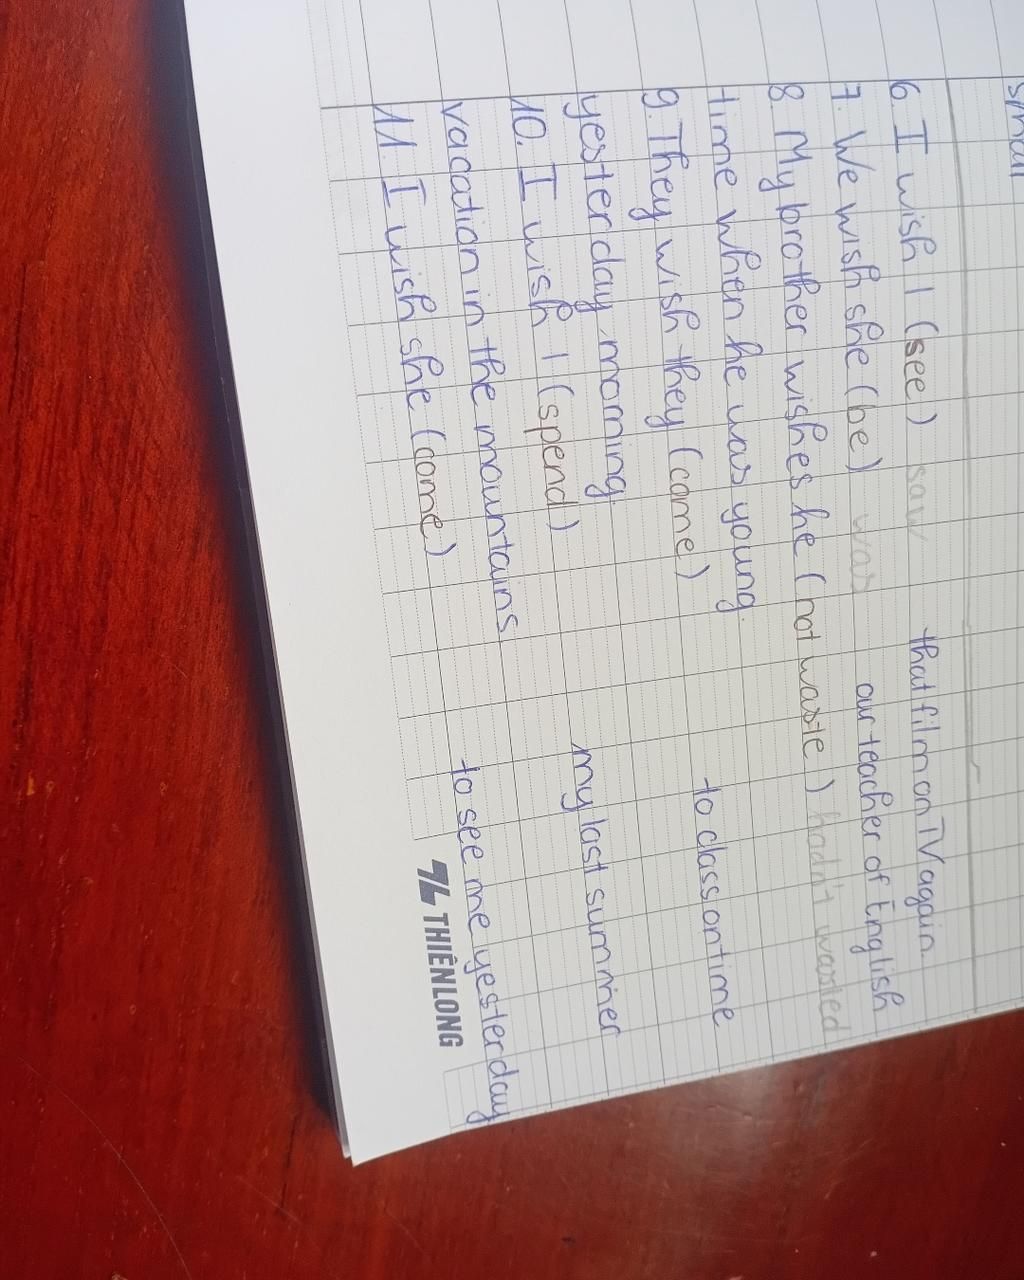 small
6. I wish I (see) saw that film on TV again.
7. We wish she (be) was our teacher of English
8 My brother wishes he (not waste) hadn't wasted
time when he was young.
9. They wish they (came) to class on time
yesterday morning.
10. I wish I (spend) my last summer
vacation in the mountains
11. I wish she (come) to see me yesterday
THIÊN LONG